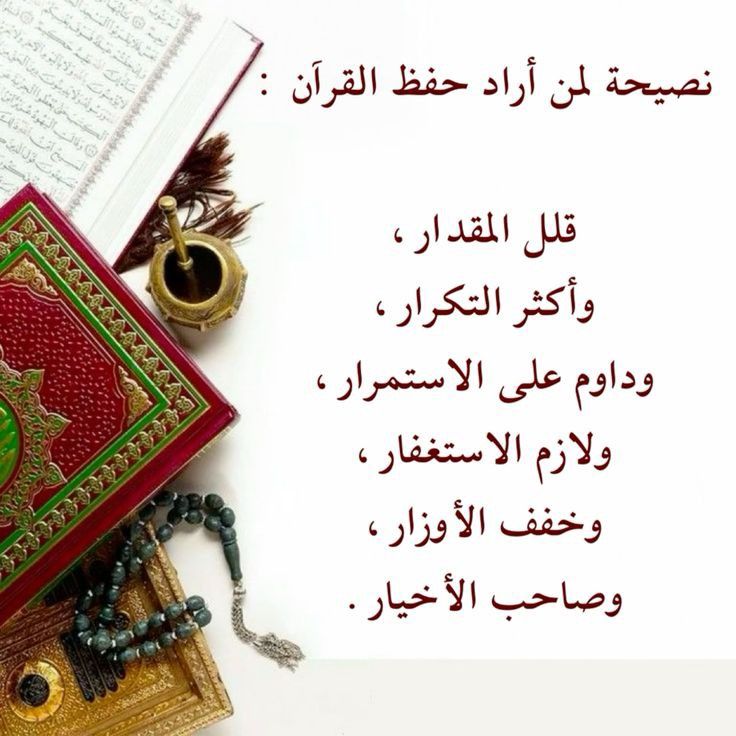 نصيحة لمن أراد حفظ القرآن :
قلل المقدار ،
وأكثر التكرار ،
وداوم على الاستمرار ،
ولازم الاستغفار ،
وخفف الأوزار ،
وصاحب الأخيار .